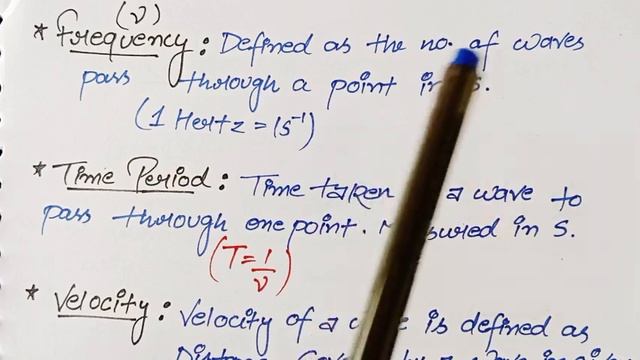 (ν)
* Frequency : Defined as the no. of waves
pass through a point in s.
(1 Hertz = 1s⁻¹)
* Time Period : Time taken a wave to
pass through one point. in S.
(T = 1/ν)
* Velocity : Velocity of a is defined as